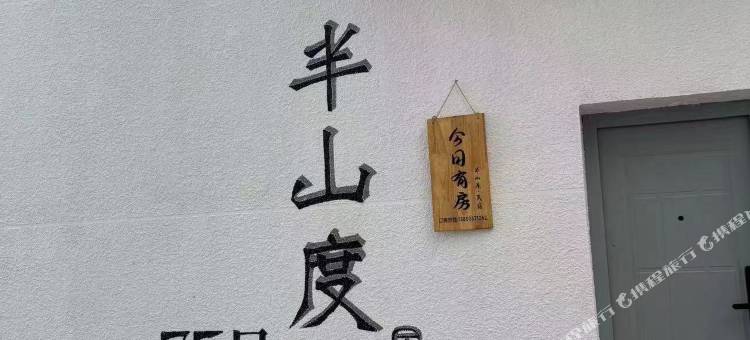 半山度
今日有房
半山度·民宿
携程旅行
携程旅行
携程旅行